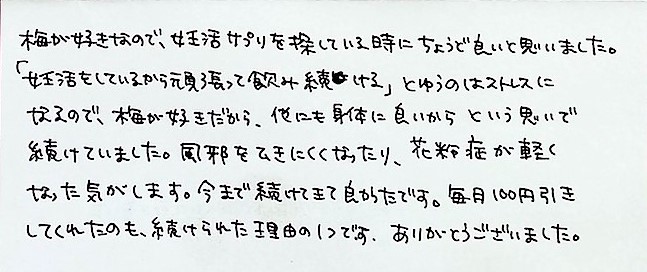 梅が好きなので、妊活サプリを探している時にちょうど良いと思いました。
「妊活をしているから頑張って飲み続ける」とゆうのはストレスに
なるので、梅が好きだから、他にも身体に良いからという思いで
続けていました。風邪をひきにくくなったり、花粉症が軽く
なった気がします。今まで続けてきて良かったです。毎月100円引き
してくれたのも、続けられた理由の1つです。ありがとうございました。